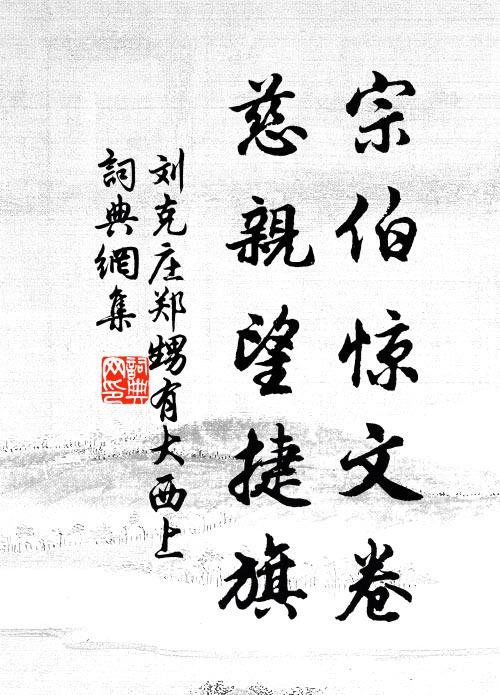 宗伯惊文卷
慈親望捷旗
刘克庄郑甥有大西上
詞典網集
詞典網印